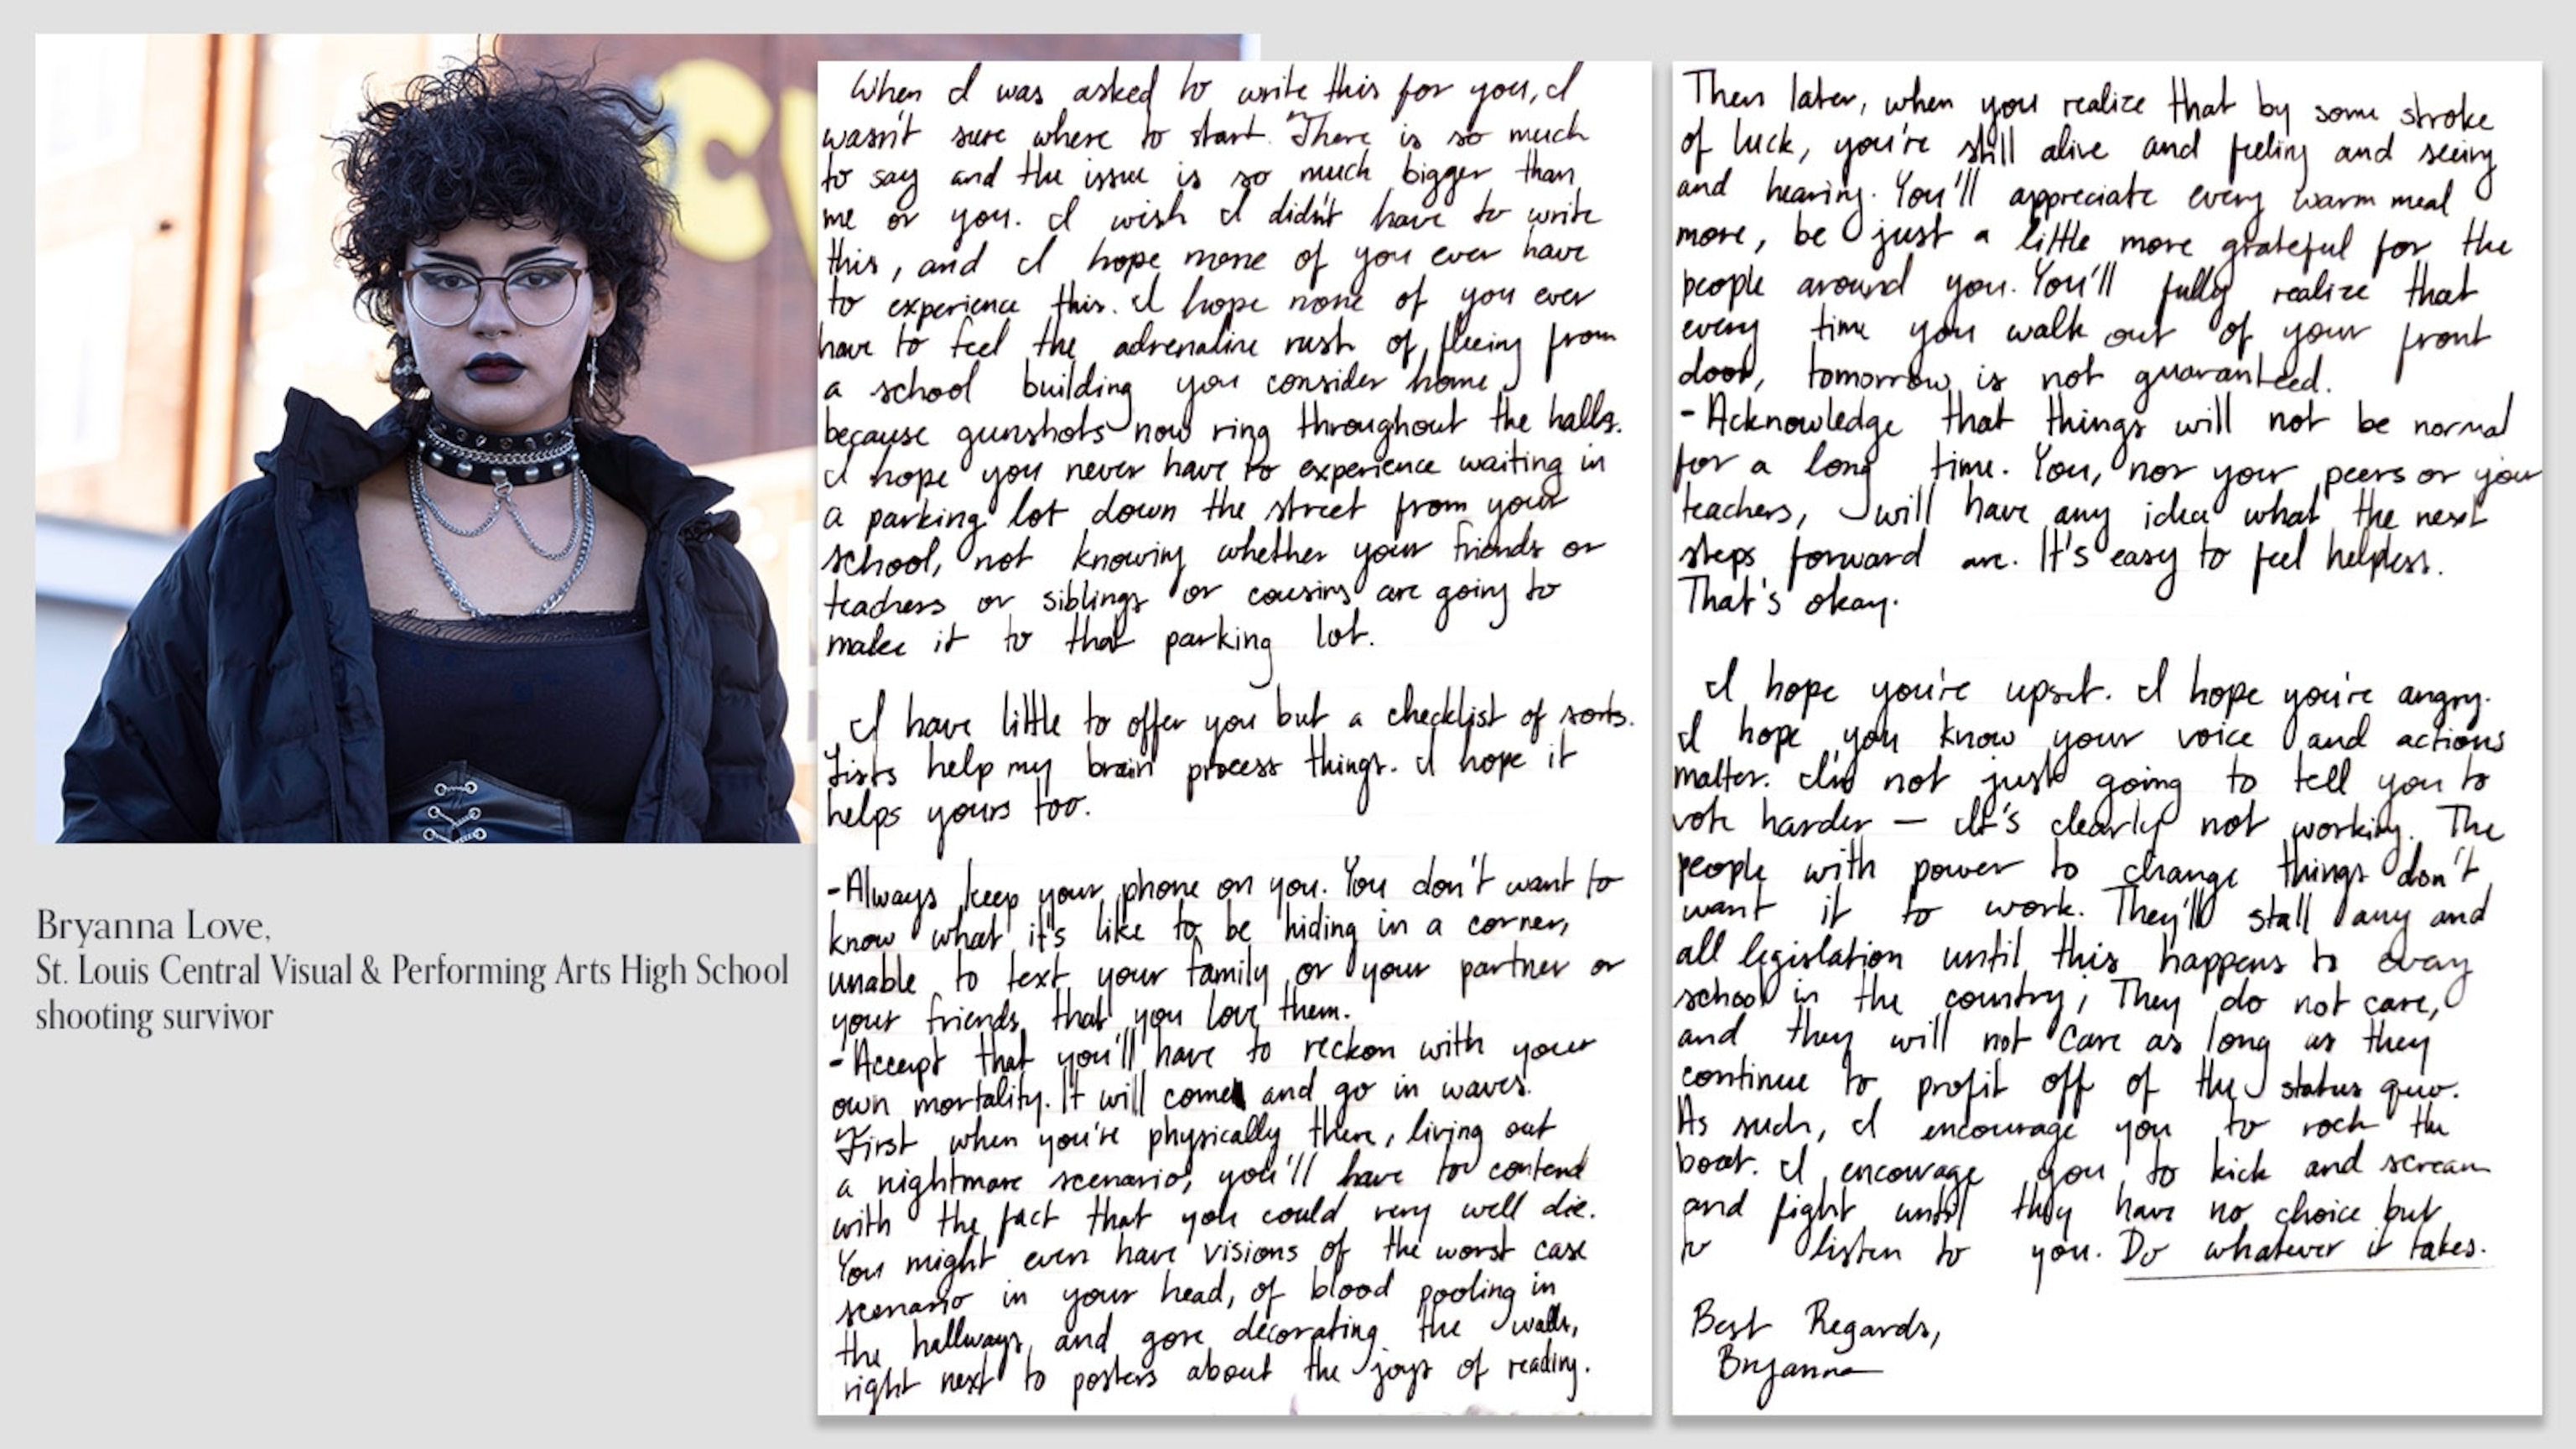 CV
Bryanna Love,
St. Louis Central Visual & Performing Arts High School
shooting survivor
When I was asked to write this for you, I
wasn't sure where to start. There is so much
to say and the issue is so much bigger than
me or you. I wish I didn't have to write
this, and I hope none of you ever have
to experience this. I hope none of you ever
have to feel the adrenaline rush of fleeing from
a school building you consider home
because gunshots now ring throughout the halls.
I hope you never have to experience waiting in
a parking lot down the street from your
school, not knowing whether your friends or
teachers or siblings or cousins are going to
make it to that parking lot.
I have little to offer you but a checklist of sorts.
Lists help my brain process things. I hope it
helps yours too.
-Always keep your phone on you. You don't want to
know what it's like to be hiding in a corner,
unable to text your family or your partner or
your friends that you love them.
-Accept that you'll have to reckon with your
own mortality. It will come and go in waves.
First when you're physically there, living out
a nightmare scenario, you'll have to contend
with the fact that you could very well die.
You might even have visions of the worst case
scenario in your head, of blood pooling in
the hallways, and gore decorating the walls,
right next to posters about the joys of reading.
Then later, when you realize that by some stroke
of luck, you're still alive and feeling and seeing
and hearing. You'll appreciate every warm meal
more, be just a little more grateful for the
people around you. You'll fully realize that
every time you walk out of your front
door, tomorrow is not guaranteed.
-Acknowledge that things will not be normal
for a long time. You, nor your peers or your
teachers, will have any idea what the next
steps forward are. It's easy to feel helpless.
That's okay.
I hope you're upset. I hope you're angry.
I hope you know your voice and actions
matter. I'm not just going to tell you to
vote harder — It's clearly not working. The
people with power to change things don't
want it to work. They'll stall any and
all legislation until this happens to every
school in the country; They do not care,
and they will not care as long as they
continue to profit off of the status quo.
As such, I encourage you to rock the
boat. I encourage you to kick and scream
and fight until they have no choice but
to listen to you. Do whatever it takes.
Best Regards,
Bryanna